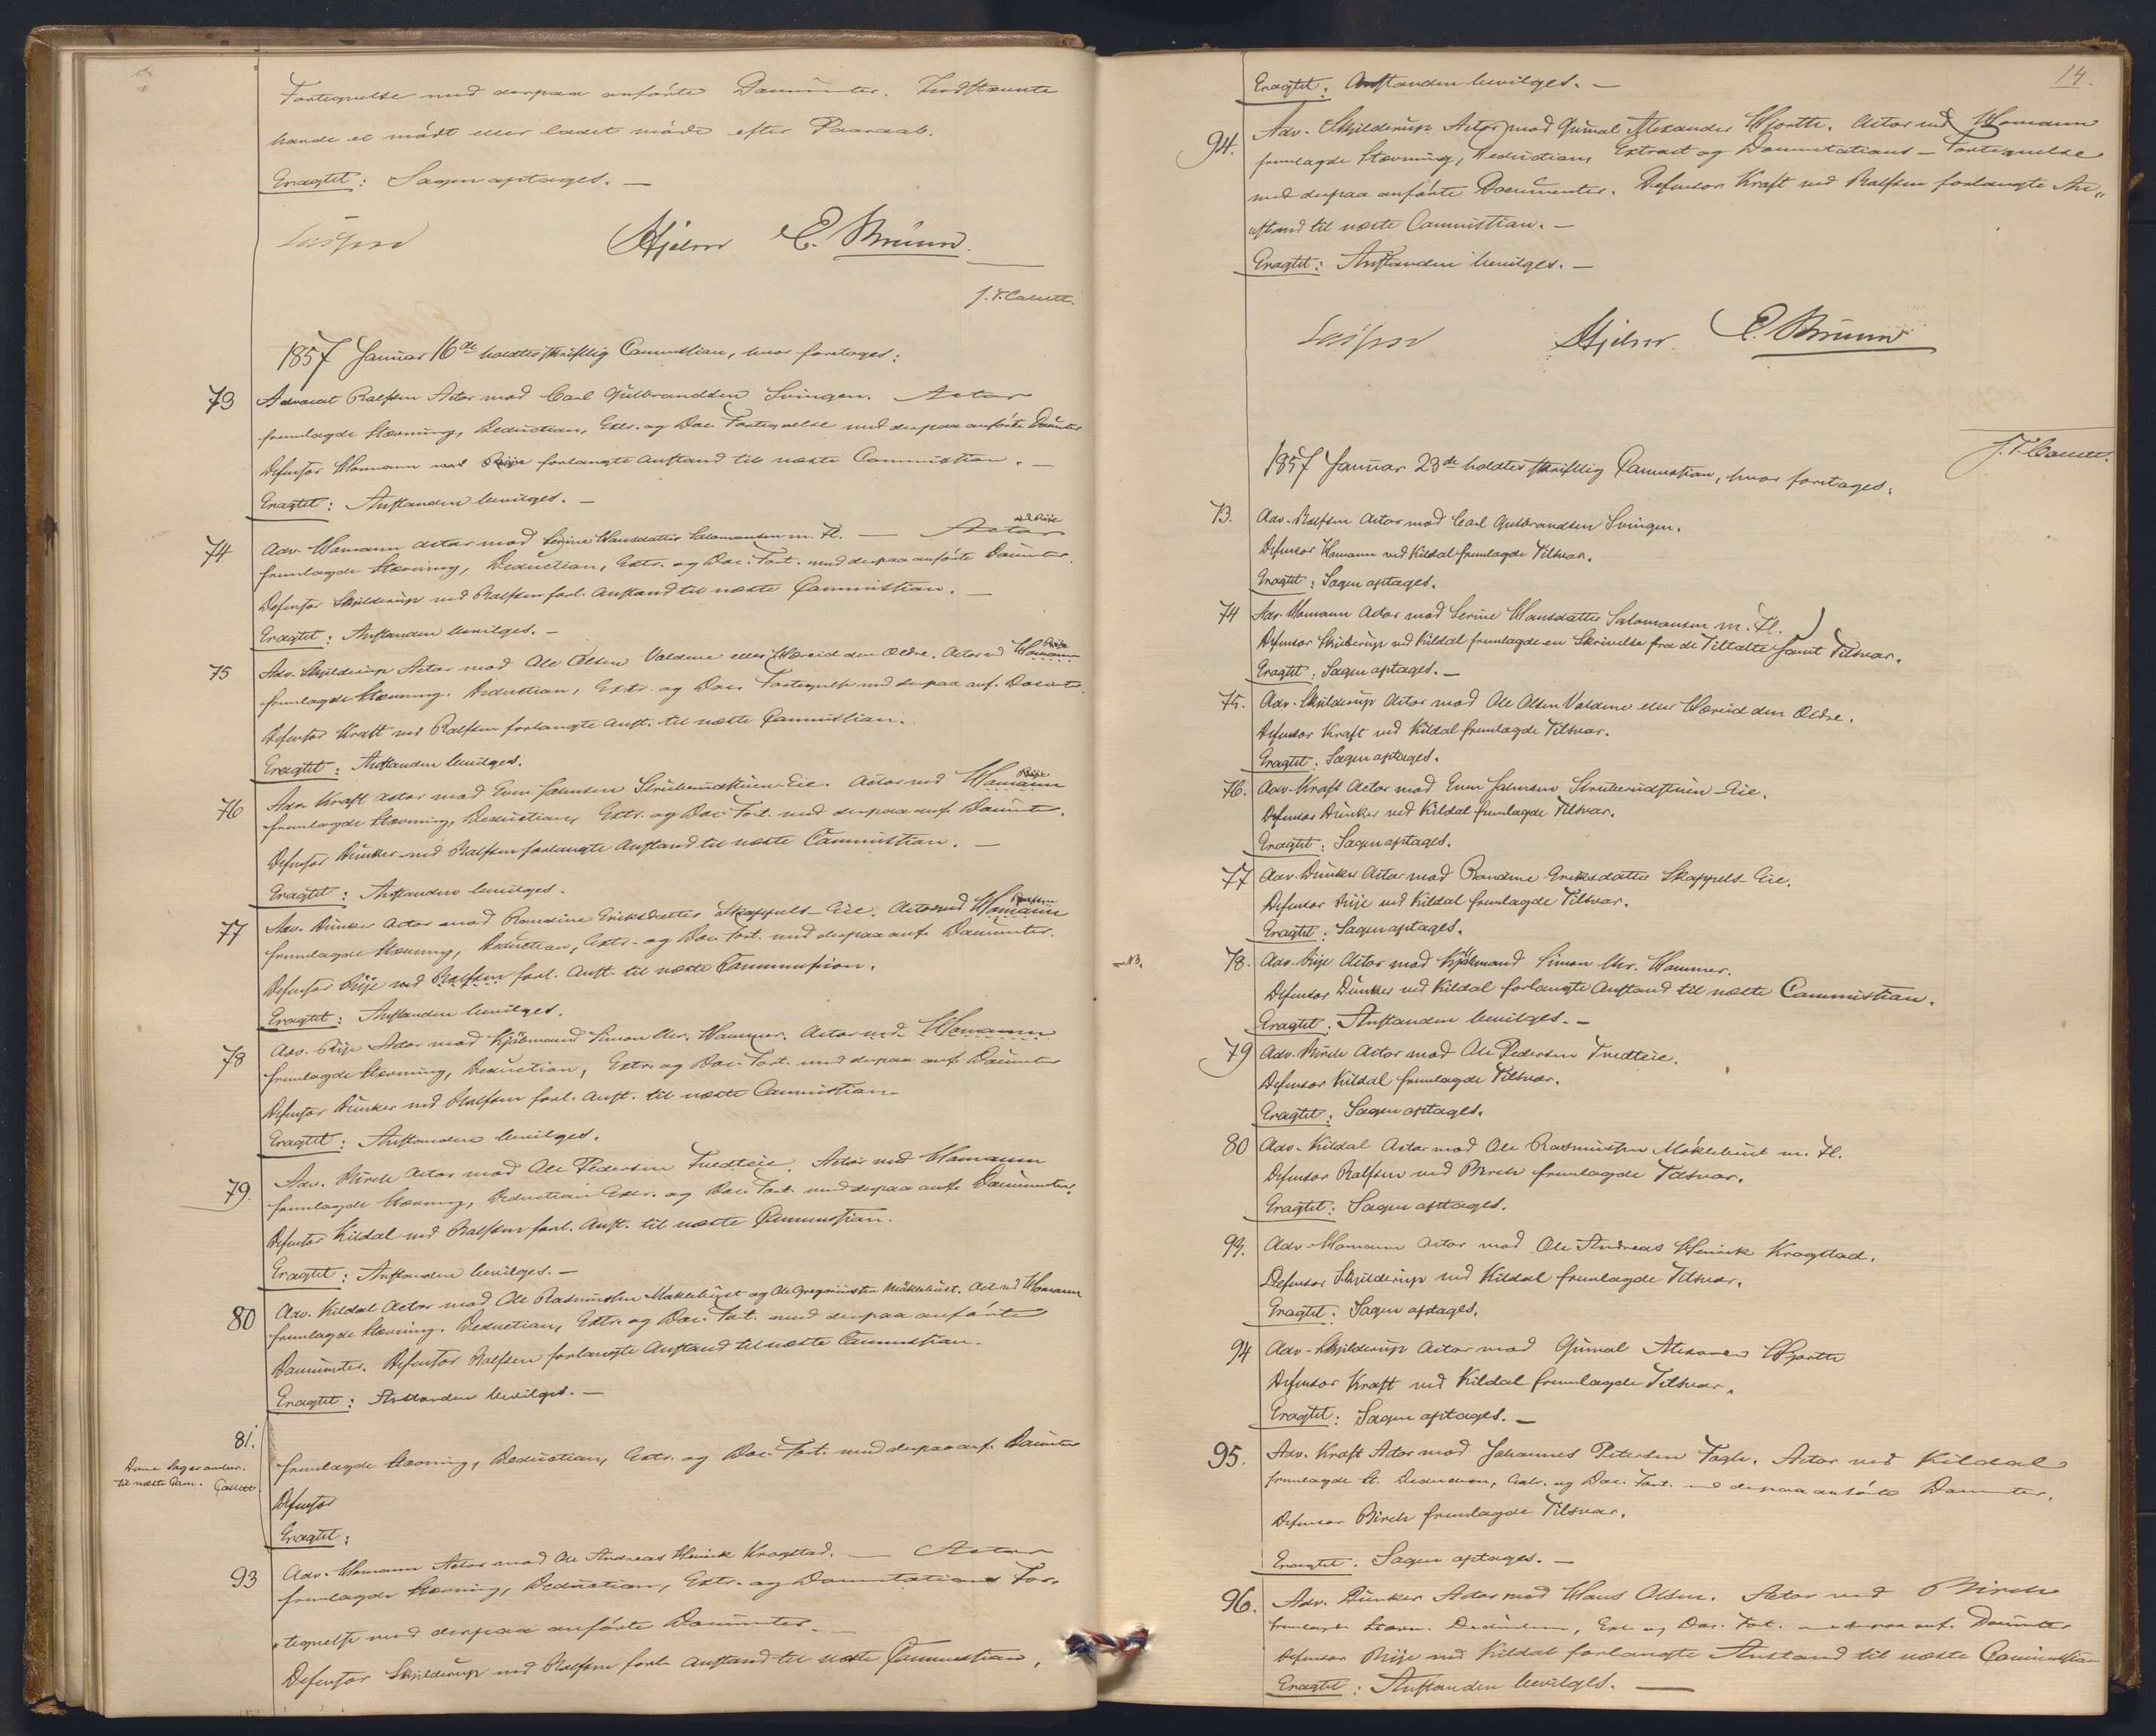 Fortegnelse med derpaa anförte Documenter. Indstævnte
havde ei mödt eller ladet möde efter Paaraab.
Eragtet: Sagen optages. —
Lasson Hjelm E. Bruun.
J. F. Collett.
1857 Januar 16de holdtes skriftlig Commission, hvor foretoges:
73 Advocat Rolfsen Actor mod Carl Gulbrandsen Svingen. Actor
fremlagde Stævning, Deduction, Extr. og Doc. Fortegnelse med derpaa anförte Docmter
Defensor Homann ved forlangte Anstand til næste Commission. —
Eragtet: Anstanden bevilges. —
74 Adv. Homann Actor mod Serine Hansdatter Salomonsen m. Fl. — Actor ved Riije
fremlagde Stævning, Deduction, Extr. og Doc. Fort. med derpaa anförte Docmter.
Defensor Skjilderup ved Rolfsen forl. Anstand til næste Commission. —
Eragtet: Anstanden bevilges. —
75 Adv. Skjilderup Actor mod Ole Olsen Voldene eller Hæreid den Ældre. Actor v. Homann Riije
fremlagde Stævning, Deduction, Extr. og Doc. Fortegnelse med derpaa anf. Docmter.
Defensor Kraft ved Rolfsen forlangte Anst. til næste Commission.
Eragtet: Anstanden bevilges.
76 Adv. Kraft Actor mod Even Johnsen Struberudstuen-Eie. Actor ved Homann Riije
fremlagde Stævning, Deduction, Extr. og Doc. Fort. med derpaa anf. Docmt.
Defensor Dunker ved Rolfsen forlangte Anstand til næste Commission. —
Eragtet: Anstanden bevilges.
77 Adv. Dunker Actor mod Randine Eriksdatter Skappels-Eie. Actor ved Homann
fremlagde Stævning, Deduction, Extr. og Doc. Fort. med derpaa anf. Documenter.
Defensor Riije ved Rolfsen forl. Anst. til næste Commission.
Eragtet: Anstanden bevilges.
78 Adv. Riije Actor mod Kjöbmand Simon Chr. Hammer. Actor ved Homann
fremlagde Stævning, Deduction, Extr. og Doc. Fort. med derpaa anf. Docmter
Defensor Dunker ved Rolfsen forl. Anst. til næste Commission.
Eragtet: Anstanden bevilges.
79. Adv. Birch Actor mod Ole Pedersen Tvedteie. Actor ved Homann
fremlagde Stævning, Deduction Extr. og Doc. Fort. med derpaa anf. Documenter.
Defensor Kildal ved Rolfsen forl. Anst. til næste Commission.
Eragtet: Anstanden bevilges. —
80 Adv. Kildal Actor mod Ole Rasmussen Moklebust og Ole Gregoriussen Möklebust. Act. ved Homann
fremlagde Stævning, Deduction, Extr. og Doc. Fort. med derpaa anförte
Documenter. Defensor Rolfsen forlangte Anstand til næste Commission.
Eragtet: Anstanden bevilges. —
81.
fremlagde Stævning, Deduction, Extr. og Doc. Fort. med derpaa anf. Docmter
Denne Sag er
til næste Com. Collett
Defensor
Eragtet:
93 Adv. Homann Actor mod Ole Andreas Henrik Kragstad. — Actor
fremlagde Stævning, Deduction, Extr. og Documentations For-
tegnelse med derpaa anförte Documenter. —
Defensor Skjilderup ved Rolfsen forl. Anstand til næste Commission.
14.
Eragtet: Anstanden bevilges. —
94. Adv. Skjilderup Actor mod Gunval Alexander Hjorth. Actor ved Homann
fremlagde Stævning, Deduction, Extract og Documentations-Fortegnelse
med derpaa anförte Documenter. Defensor Kraft ved Rolfsen forlangte An-
stand til næste Commission. —
Eragtet: Anstanden bevilges. —
Lasson Hjelm. E. Bruun
J. F. Collett.
1857 Januar 23de holdtes skriftlig Commission, hvor foretoges:
73. Adv. Rolfsen Actor mod Carl Gulbrandsen Svingen.
Defensor Homann ved Kildal fremlagde Tilsvar.
Eragtet: Sagen optages.
74 Adv. Homann Actor mod Serine Hansdatter Salomonsen m. Fl.
Defensor Skjilderup ved Kildal fremlagde en Skrivelse fra de Tiltalte samt Tilsvar.
Eragtet: Sagen optages. —
75. Adv. Skjilderup Actor mod Ole Olsen Voldene eller Hæreid den Ældre.
Defensor Kraft ved Kildal fremlagde Tilsvar.
Eragtet: Sagen optages.
76. Adv. Kraft Actor mod Even Johnsen Struberudstuen-Eie.
Defensor Dunker ved Kildal fremlagde Tilsvar.
Eragtet: Sagen optages.
77 Adv. Dunker Actor mod Randine Eriksdatter Skappels-Eie.
Defensor Riije ved Kildal fremlagde Tilsvar.
Eragtet: Sagen optages.
NB. 78. Adv. Riije Actor mod Kjöbmand Simon Chr. Hammer.
Defensor Dunker ved Kildal forlangte Anstand til næste Commission.
Eragtet: Anstanden bevilges. —
79 Adv. Birch Actor mod Ole Pedersen Tvedteie.
Defensor Kildal fremlagde Tilsvar.
Eragtet: Sagen optages.
80 Adv. Kildal Actor mod Ole Rasmussen Möklebust m. Fl.
Defensor Rolfsen ved Birch fremlagde Tilsvar.
Eragtet: Sagen optages.
93. Adv. Homann Actor mod Ole Andreas Henrik Kragstad.
Defensor Skjilderup ved Kildal fremlagde Tilsvar.
Eragtet: Sagen optages.
94 Adv. Skjilderup Actor mod Gunval Alexander Hjorth
Defensor Kraft ved Kildal fremlagde Tilsvar.
Eragtet: Sagen optages. —
95. Adv. Kraft Actor mod Johannes Petersen Fagh. Actor ved Kildal
fremlagde St. Deduction, Extr. og Doc. Fort. med derpaa anförte Docmter.
Defensor Birch fremlagde Tilsvar.
Eragtet. Sagen optages. —
96. Adv. Dunker Actor mod Hans Olsen. Actor ved Birch
fremlagde Stævn. Deduction, Ext. og Doc. Fort. med derpaa anf. Docmter
Defensor Riije ved Kildal forlangte Anstand til næste Commission
Eragtet: Anstanden bevilges. —